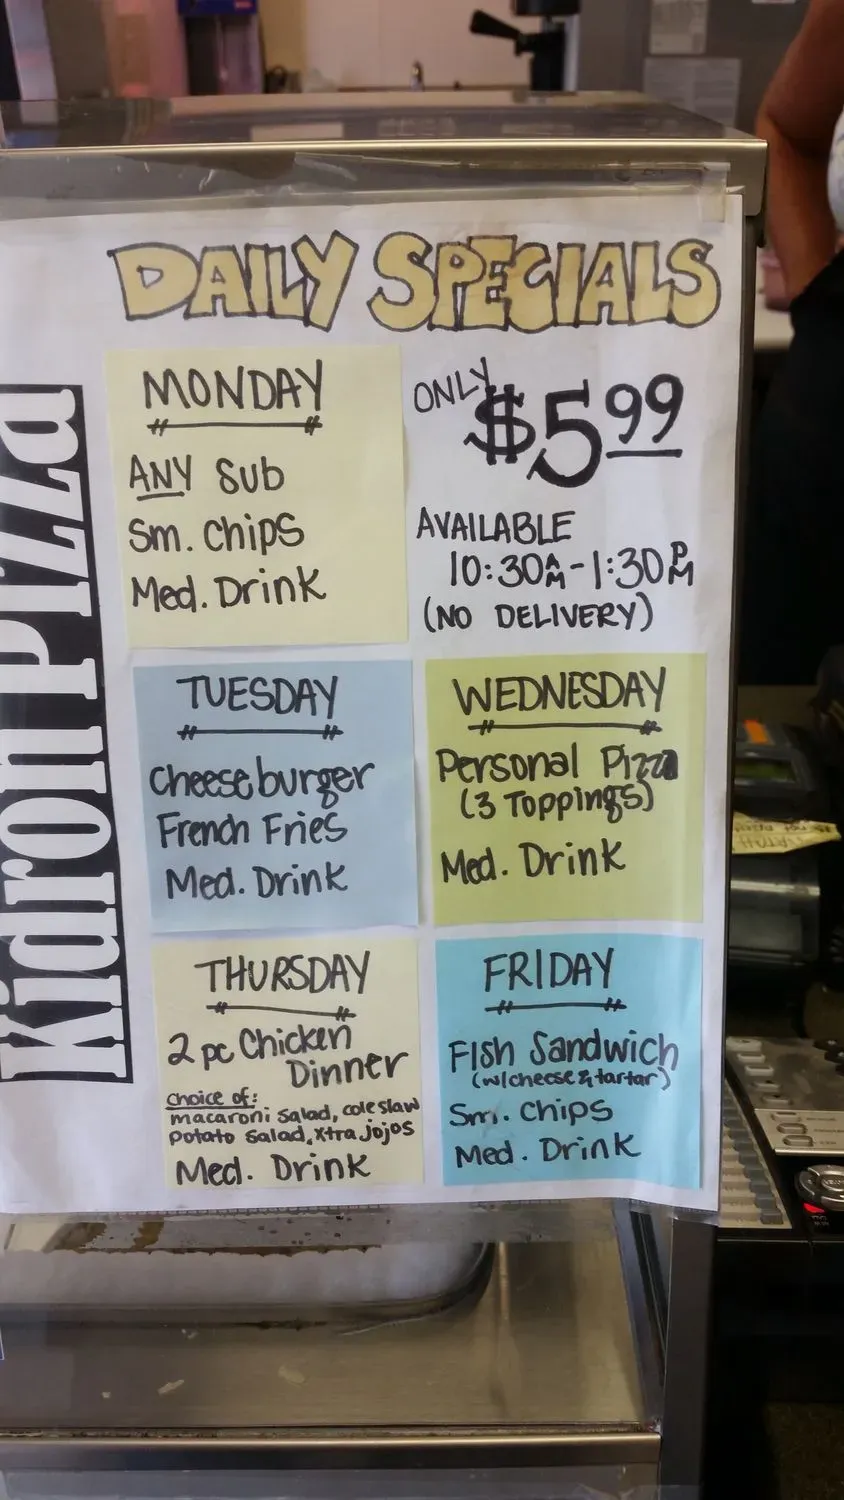 DAILY SPECIALS
Kidron Pizza
MONDAY
ANY Sub
Sm. Chips
Med. Drink
ONLY $5.99
AVAILABLE
10:30AM-1:30PM
(NO DELIVERY)
TUESDAY
Cheeseburger
French Fries
Med. Drink
WEDNESDAY
Personal Pizza
(3 Toppings)
Med. Drink
THURSDAY
2 pc Chicken
Dinner
Choice of:
macaroni salad, coleslaw
potato salad, xtra jojos
Med. Drink
FRIDAY
Fish Sandwich
(w/cheese & tartar)
Sm. Chips
Med. Drink